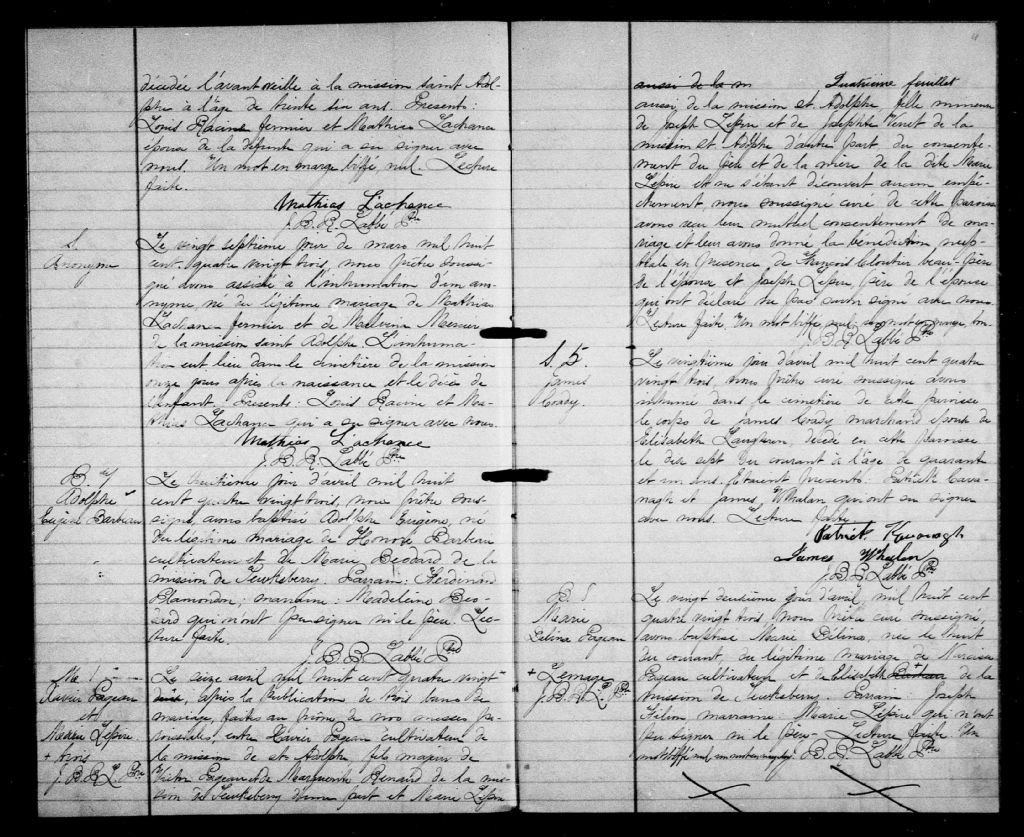 décédée l'avant veille à la mission saint Adol-
phe à l'âge de trente six ans. Présents:
Louis Racine fermier et Mathias Lachance
époux de la défunte qui a su signer avec
nous. Un mot en marge biffé nul. Lecture
faite.
Mathias Lachance
J. B. R. Labbé Ptre
S.
Anonyme
Le vingt septième jour de mars mil huit
cent quatre vingt trois, nous prêtre soussi-
gné avons assisté à l'inhumation d'un ano-
nyme né du légitime mariage de Mathias
Lachance fermier et de Malvina Mercier
de la mission saint Adolphe. L'inhuma-
tion eut lieu dans le cimetière de la mission
onze jours après la naissance et le décès de
l'enfant. Présents: Louis Racine et Ma-
thias Lachance qui a su signer avec nous.
Mathias Lachance
J. B. R. Labbé Ptre
B.
Adolphe
Eugène Barbeau
Le huitième jour d'avril mil huit
cent quatre vingt trois, nous prêtre sous-
signé, avons baptisé Adolphe Eugène, né
du légitime mariage de Honoré Barbeau
cultivateur et de Marie Bedard de la
mission de Tewkesberry. Parrain: Ferdinand
Plamondon; marraine: Madeleine Be-
dard qui n'ont pu signer ni le père. Lec-
ture faite.
J. B. R. Labbé Ptre
M. 1
Xavier Pageau
et
Marie Lepire
+ trois
J. B. R. L. Ptre
Le seize avril mil huit cent quatre vingt
+ après la publication de trois bans de
mariage, faites au prône de nos messes pa-
roissiales, entre Xavier Pageau cultivateur de
la mission de st Adolphe, fils majeur de
Victor Pageau et de Marguerite Renaud de la mis-
sion de Tewkesberry d'une part et Marie Lepire
aussi de la m Quatrième feuillet
aussi de la mission st Adolphe fille mineure
de Joseph Lepire et de Josephte Verret de la
mission st Adolphe d'autre part du consente-
ment du père et de la mère de la dite Marie
Lepire et ne s'étant découvert aucun empê-
chement, nous soussigné curé de cette paroisse
avons reçu leur mutuel consentement de ma-
riage et leur avons donné la bénédiction nup-
tiale en présence de François Cloutier beau-père
de l'époux et Joseph Lepire, père de l'épouse
qui ont déclaré ne pas savoir signer avec nous.
Lecture faite. Un mot biffé nul, un mot en marge, bon.
J. B. R. Labbé Ptre
S. 5
James
Coady.
Le vingtième jour d'avril mil huit cent quatre
vingt trois, nous prêtre curé soussigné avons
inhumé dans le cimetière de cette paroisse
le corps de James Coady marchand époux de
Elisabeth décédé en cette paroisse
le dix sept du courant à l'âge de quarante
et un ans. Etaient présents: Patrick Cava-
nagh et James Whalan qui ont su signer
avec nous. Lecture faite.
Patrick
James Whalen
J. B. R. Labbé Ptre
B.
Marie
Délina Pageau
+ Lemage
J. B. R. L. Ptre
Le vingt deuxième jour d'avril mil huit cent
quatre vingt trois, nous Prêtre curé soussigné,
avons baptisé Marie Délina, née le huit
du courant, du légitime mariage de Narcisse
Pageau cultivateur et de Elisabeth + de la
mission de Tewkesberry. Parrain Joseph
Filion, marraine Marie Lepire qui n'ont
pu signer ni le père. Lecture faite. Un
mot biffé nul un mot en marge bon. J. B. R. Labbé Ptre